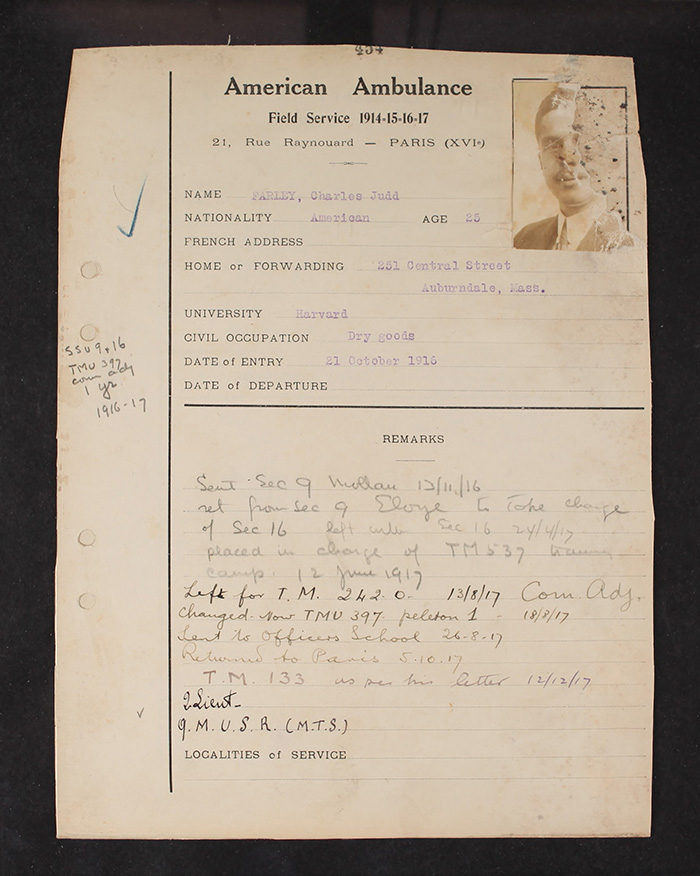 434
American Ambulance
Field Service 1914-15-16-17
21, Rue Raynouard — PARIS (XVIe)
NAME FARLEY, Charles Judd
NATIONALITY American AGE 25
FRENCH ADDRESS
HOME or FORWARDING 251 Central Street
Auburndale, Mass.
UNIVERSITY Harvard
CIVIL OCCUPATION Dry goods
DATE of ENTRY 21 October 1916
DATE of DEPARTURE
SSU 9+16
TMU 397
com adj
1 yr
1916-17
REMARKS
Sent Sec 9 13/11/16
ret from Sec 9 to take charge
of Sec 16 left with Sec 16 24/4/17
placed in charge of TM 537 training
camp. 12 June 1917
Left for T.M. 242.0. 13/8/17 Com. Adj.
Changed. Now TMU 397. peleton 1 - 18/8/17
Sent to Officers School 26-8-17
Returned to Paris 5.10.17
T.M. 133 as per his letter 12/12/17
2 Lieut-
Q.M.U.S.R. (M.T.S.)
LOCALITIES of SERVICE